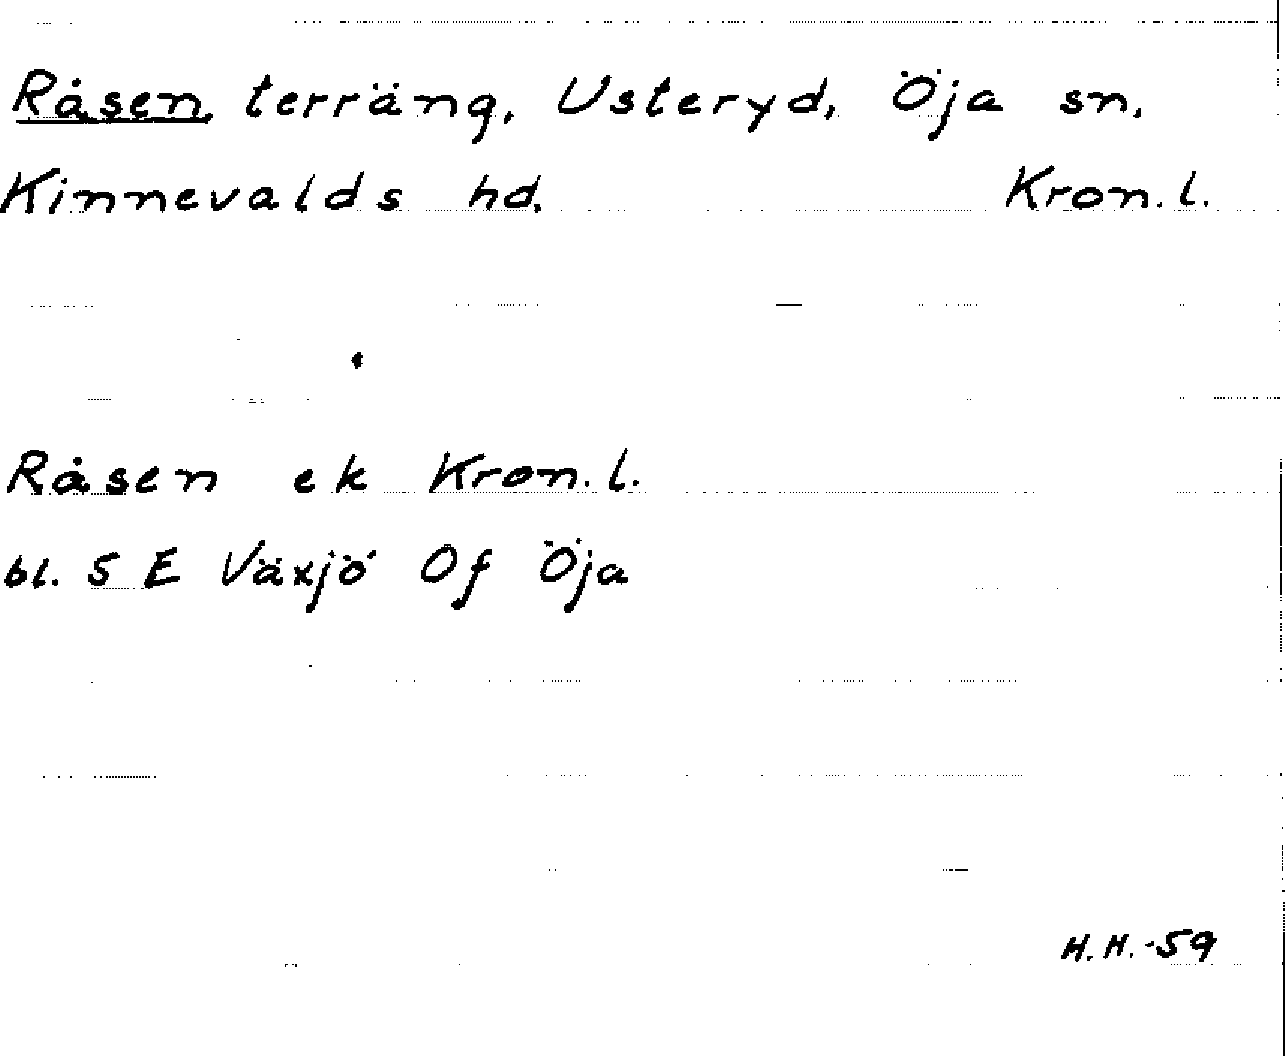 Råsen, terräng, Usteryd, Öja sn,
Kinnevalds hd. Kron.l.
Råsen ek Kron.l.
bl. 5 E Växjö Of Öja
H.H.-59